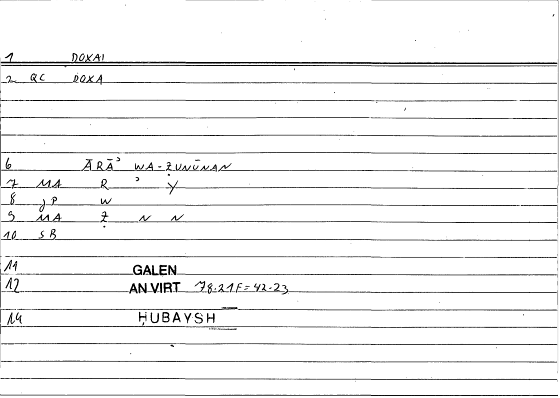 1 DOXAI
2 QC DOXA
6 ĀRĀʾ WA-ẒUNŪNAN
7 MA R ʾ Y
8 JP W
9 MA Ẓ N N
10 SB
11 GALEN
12 AN.VIRT 78.21F=42.23
14 ḤUBAYSH